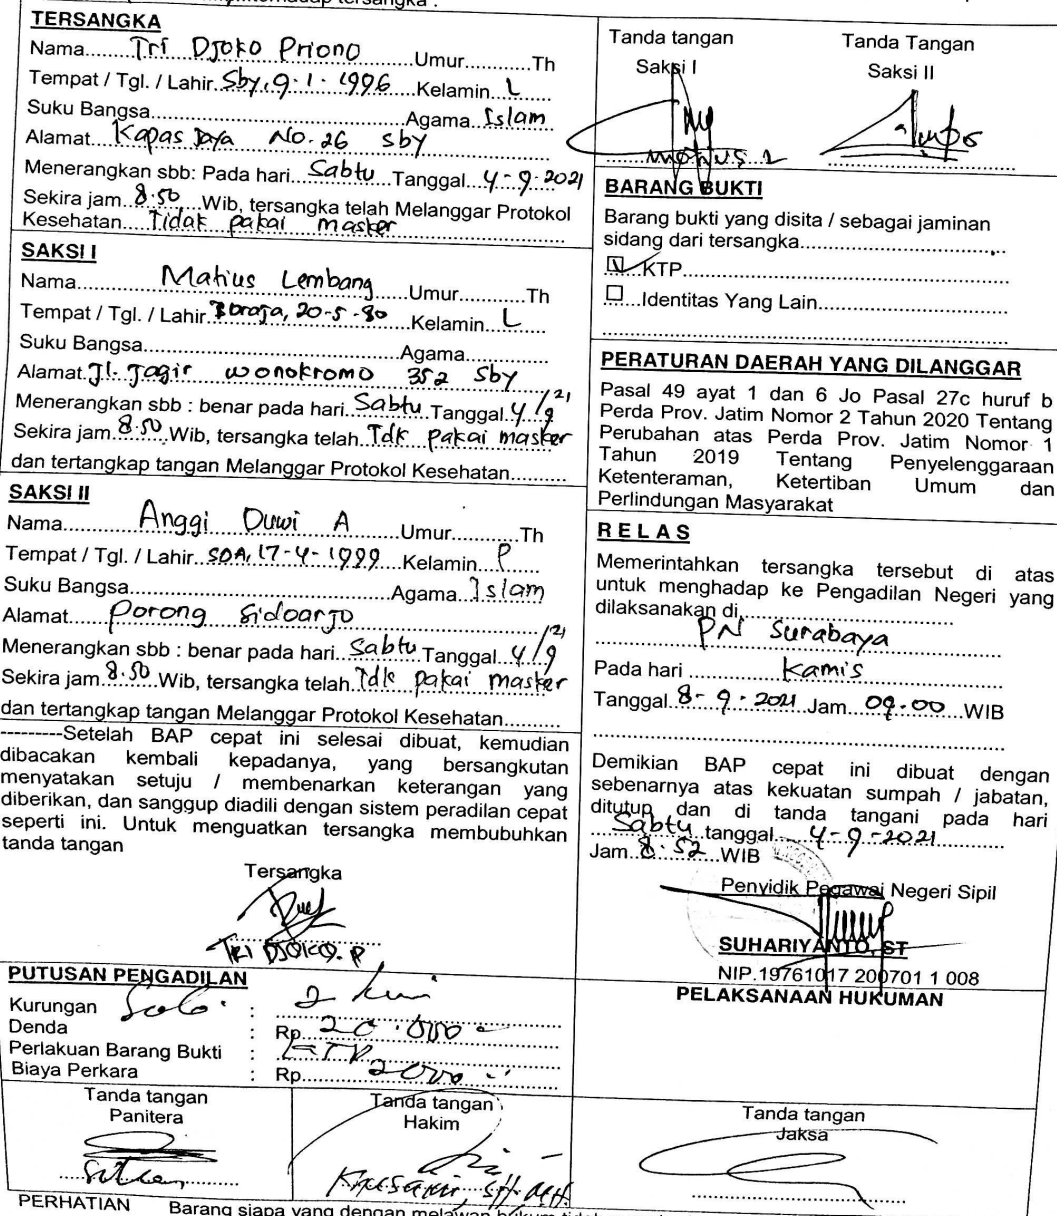 terhadap tersangka :
TERSANGKA
Nama.......Tri Djoko Priono.......Umur...........Th
Tempat / Tgl. / Lahir..Sby, 9-1-1996...Kelamin..L......
Suku Bangsa...........................Agama..Islam
Alamat...Kapas Jaya No. 26 Sby
Menerangkan sbb: Pada hari...Sabtu...Tanggal...4-9-2021
Sekira jam..8.50...Wib, tersangka telah Melanggar Protokol
Kesehatan....Tidak pakai masker
SAKSI I
Nama............Matius Lembang......Umur...........Th
Tempat / Tgl. / Lahir..Toraja, 20-5-80...Kelamin...L....
Suku Bangsa...........................Agama............
Alamat..Jl. Jagir wonokromo 352 Sby
Menerangkan sbb : benar pada hari...Sabtu..Tanggal..4/9 '21
Sekira jam..8.50..Wib, tersangka telah..Tdk pakai masker
dan tertangkap tangan Melanggar Protokol Kesehatan..........
SAKSI II
Nama............Anggi Duwi A......Umur...........Th
Tempat / Tgl. / Lahir..SDA, 17-4-1999...Kelamin..P.....
Suku Bangsa...........................Agama..Islam
Alamat......Porong Sidoarjo
Menerangkan sbb : benar pada hari...Sabtu..Tanggal..4/9 '21
Sekira jam..8.50..Wib, tersangka telah..Tdk pakai masker
dan tertangkap tangan Melanggar Protokol Kesehatan..........
---------Setelah BAP cepat ini selesai dibuat, kemudian
dibacakan kembali kepadanya, yang bersangkutan
menyatakan setuju / membenarkan keterangan yang
diberikan, dan sanggup diadili dengan sistem peradilan cepat
seperti ini. Untuk menguatkan tersangka membubuhkan
tanda tangan
Tersangka
TRI DJOKO. P
Tanda tangan Tanda Tangan
Saksi I Saksi II
Matius L
BARANG BUKTI
Barang bukti yang disita / sebagai jaminan
sidang dari tersangka..............................
KTP..............................
Identitas Yang Lain..............................
PERATURAN DAERAH YANG DILANGGAR
Pasal 49 ayat 1 dan 6 Jo Pasal 27c huruf b
Perda Prov. Jatim Nomor 2 Tahun 2020 Tentang
Perubahan atas Perda Prov. Jatim Nomor 1
Tahun 2019 Tentang Penyelenggaraan
Ketenteraman, Ketertiban Umum dan
Perlindungan Masyarakat
R E L A S
Memerintahkan tersangka tersebut di atas
untuk menghadap ke Pengadilan Negeri yang
dilaksanakan di..............................
PN Surabaya
Pada hari ............Kamis
Tanggal..8-9-2021..Jam...09.00...WIB
Demikian BAP cepat ini dibuat dengan
sebenarnya atas kekuatan sumpah / jabatan,
ditutup dan di tanda tangani pada hari
...Sabtu..tanggal....4-9-2021
Jam..8.52..WIB
Penyidik Pegawai Negeri Sipil
SUHARIYANTO, ST
NIP.19761017 200701 1 008
PUTUSAN PENGADILAN
Kurungan :
Denda : Rp..20.000
Perlakuan Barang Bukti : KTP
Biaya Perkara : Rp........2000
PELAKSANAAN HUKUMAN
Tanda tangan
Panitera
Tanda tangan
Hakim
Tanda tangan
Jaksa
PERHATIAN Barang siapa yang dengan melawan hukum